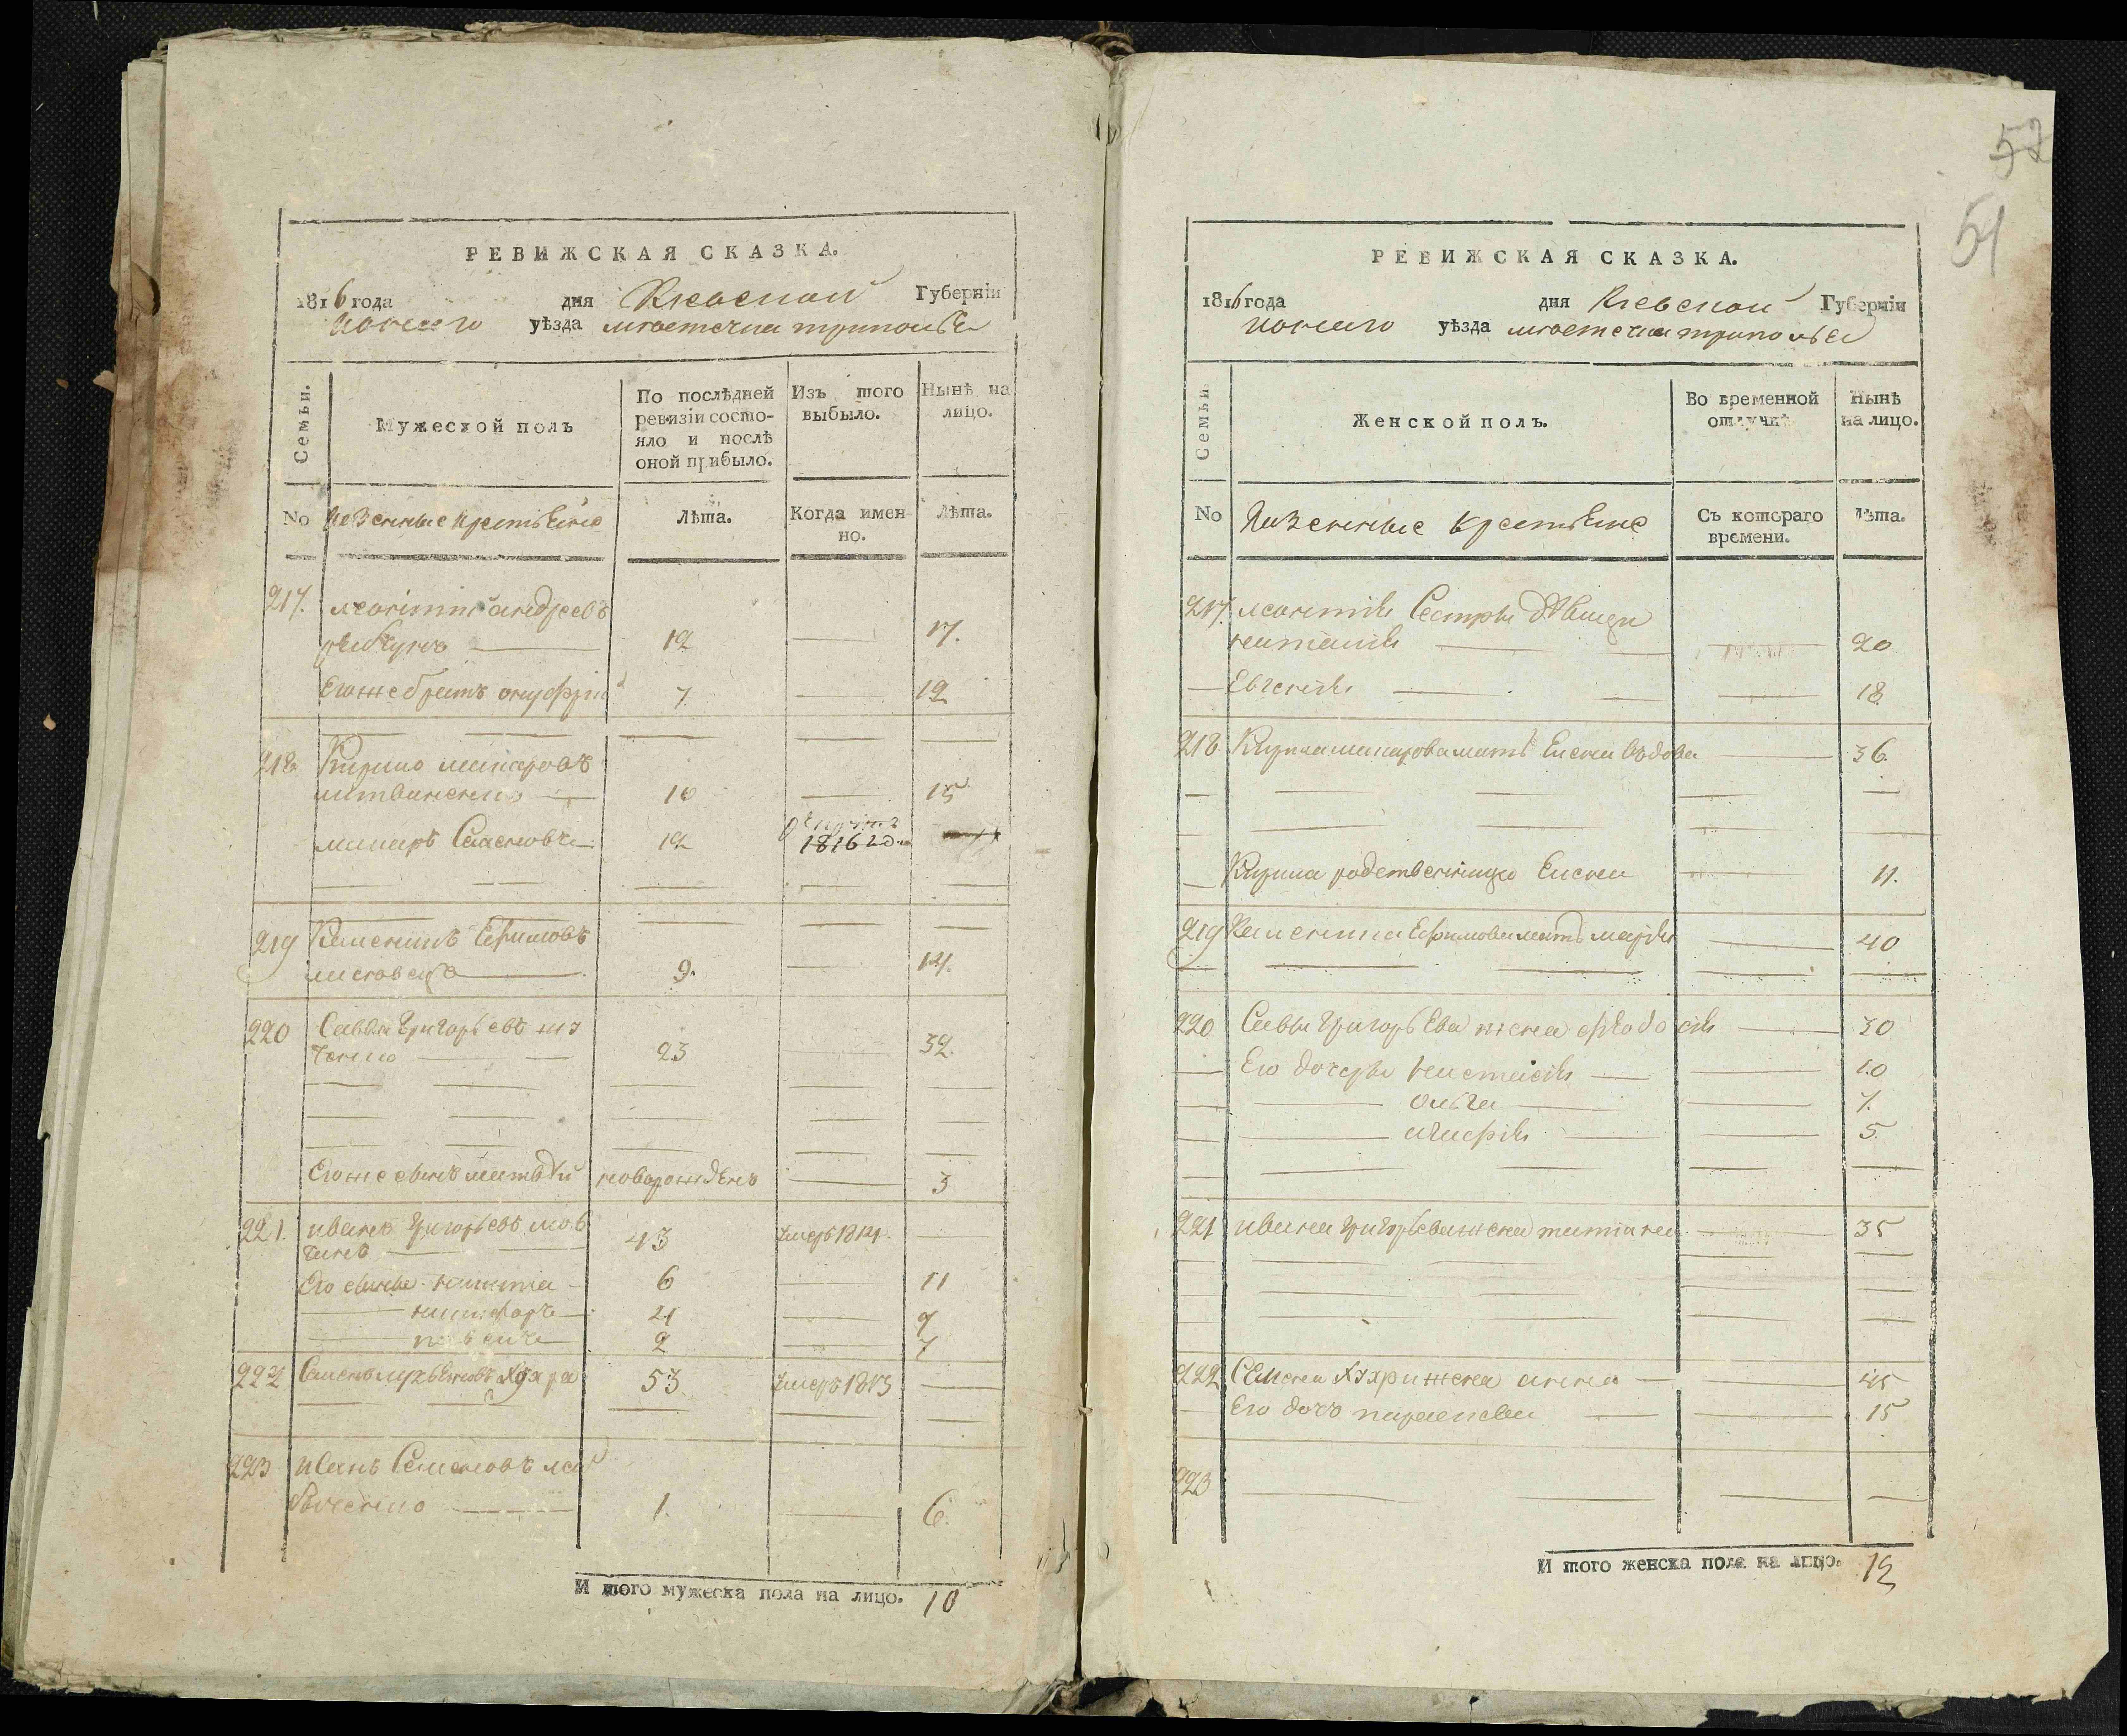 52
51
РЕВИЖСКАЯ СКАЗКА.
1816 года дня Киевской Губерніи
уѣзда местечка триполья
Семьи.
Мужеской полъ
По послѣдней ревизіи состояло и послѣ оной прибыло.
Изъ того выбыло.
Нынѣ на лицо.
No казенные крестьяне
Лѣта.
Когда именно.
Лѣта.
217. андреевъ
12 17.
Егож е братъ онуфрій 7 12
218 Кирило макаровъ
литвиненко 10 15
макаръ Семеновъ 12 1816 год
219 Климентъ Ефимовъ
9. 14.
220 Савва григорьевъ
ченко 23 32.
Егож е сынъ матвѣй новорожденъ 3
221. иванъ григорьевъ мов
чанъ 43 умеръ 1814.
Его сыны никита 6 11
никифоръ 4 9
павелъ 2 7
222 Семенъ лукьяновъ хухра 53 умеръ 1813
223 иванъ Семеновъ
1. 6.
И того мужеска пола на лицо. 10
РЕВИЖСКАЯ СКАЗКА.
1816 года дня Киевской Губерніи
уѣзда местечка триполья
Семьи
Женской полъ.
Во временной отлучкѣ
Нынѣ на лицо.
No Казенные крестьяне
Съ котораго времени.
Лѣта.
217. Сестры дѣвицы
20
Евгенія 18.
218 Кирила макарова мать Елена вдова 36.
Кирила родственница Елена 11.
219 Климента Ефимова мать марья 40
220 Савы григорьева жена феодосія 30
Его дочери настасія 10
ольга 7.
агафія 5.
221 ивана григорьева жена татіана 35
222 Семена хухри жена анна 45
Его дочь параскева 15
223
И того женска пола на лицо. 12